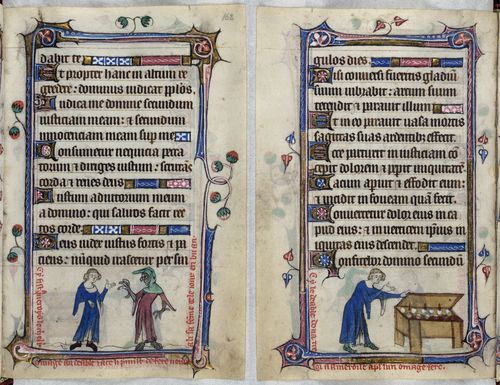 dabit te
Et propter hanc in altum re
gredere: dominus iudicat pplos.
Iudica me domine secundum
iusticiam meam: ⁊ secundum
innocenciam meam sup me
Consumetur nequicia pecca
torum ⁊ diriges iustum: scrutās
corda ⁊ renes deus
Iustum adiutorium meum
a domino: qui saluos facit rec
tos corde
Deus iudex iustus fortis ⁊ pa
ciens: nūquid irascetur per sin
gulos dies
Nisi conuersi fueritis gladiū
suum uibrabit: arcum suum
tetendit ⁊ parauit illum
Et in eo parauit uasa mortis
sagittas suas ardentib; effecit
Ecce parturit iusticiam con
cepit dolorem ⁊ peperit iniquitatē
Lacum aperuit ⁊ effodit eum:
⁊ incidit in foueam quam fecit
Conuertetur dolor eius in ca
pud eius: ⁊ in uerticem ipsius in
iquitas eius descendet
Confitebor domino secundū